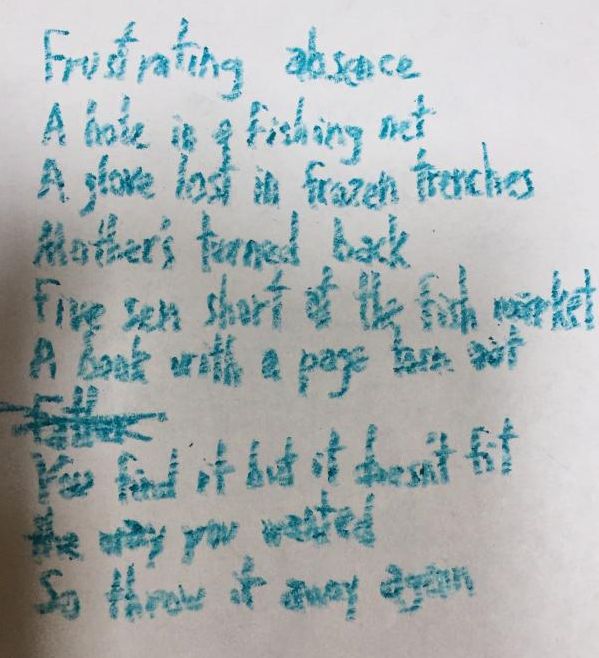 Frustrating absence
A hole in a fishing net
A glove lost in frozen trenches
Mother's turned back
Five sen short at the fish market
A book with a page torn out
Father
You find it but it doesn't fit
the way you wanted
So throw it away again